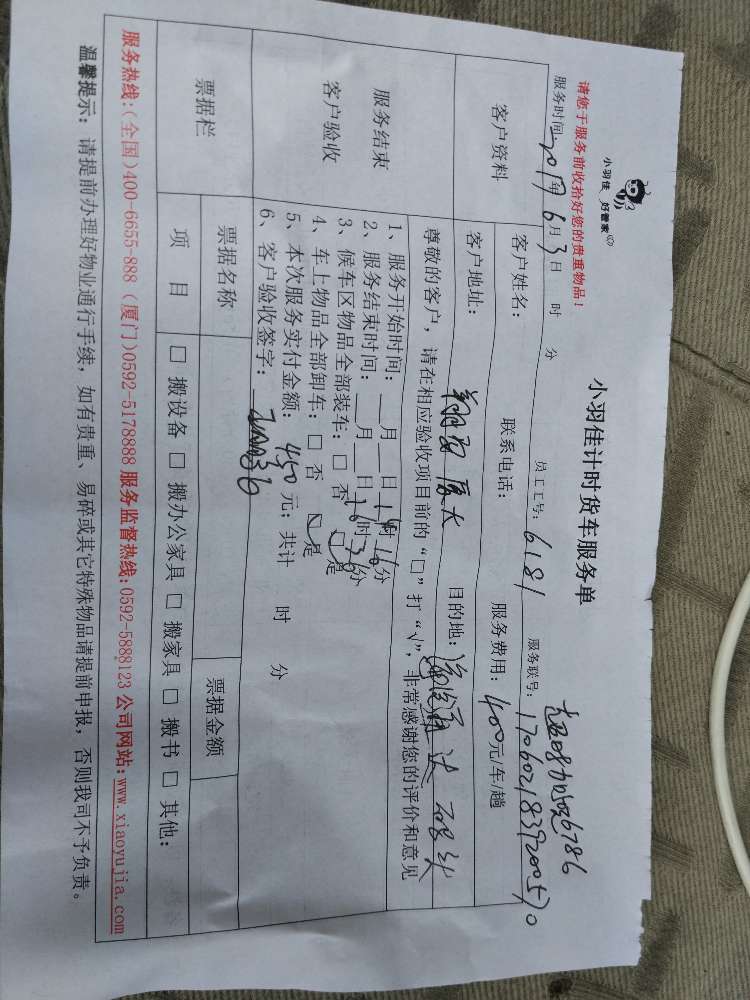 小羽佳 好管家
小羽佳计时货车服务单
请您于服务前收拾好您的贵重物品!
服务时间: 2017年6月3日 时 分 员工工号: 6181 服务联号: 1706021839200570
客户资料
客户姓名: 联系电话: 服务费用: 400元/车/趟
客户地址: 厦大 目的地:
服务结束
客户验收
尊敬的客户,请在相应验收项目前的“□”打“√”,非常感谢您的评价和意见
1、服务开始时间: 月 日 14时10分
2、服务结束时间: 月 日 16时30分
3、候车区物品全部装车: □ 否 □ 是
4、车上物品全部卸车: □ 否 □ 是
5、本次服务实付金额: 450元; 共计 时 分
6、客户验收签字:
票据栏
票据名称 票据金额
项 目 □ 搬设备 □ 搬办公家具 □ 搬家具 □ 搬书 □ 其他:
服务热线:(全国)400-6655-888 (厦门)0592-5178888 服务监督热线:0592-5888123 公司网站:www.xiaoyujia.com
温馨提示: 请提前办理好物业通行手续,如有贵重、易碎或其它特殊物品请提前申报,否则我司不予负责。